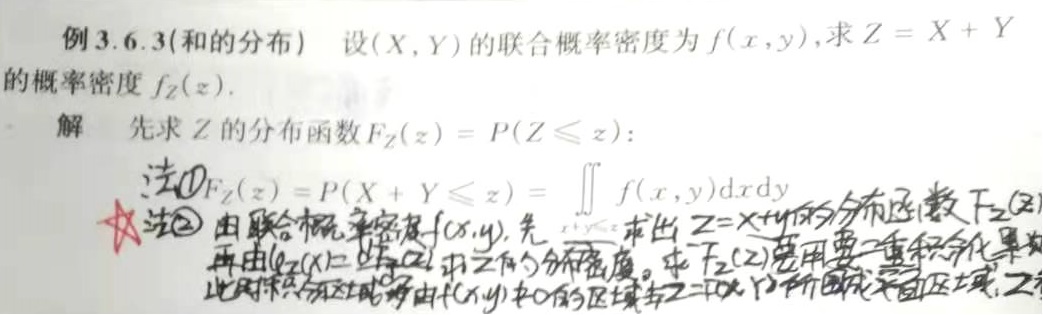 例3.6.3(和的分布) 设(X,Y)的联合概率密度为f(x,y),求Z = X + Y
的概率密度 f_Z(z).
解 先求Z的分布函数F_Z(z) = P(Z ≤ z):
法①F_Z(z) = P(X + Y ≤ z) = ∬ f(x,y)dxdy
x+y≤z
☆法② 由联合概率密度f(x,y),先求出Z=x+y的分布函数F_Z(Z)
再由φ_Z(x)=dF_Z(Z)求Z的分布密度。求F_Z(Z)要用要二重积分化累次
此时积分区域由f(x,y)≠0的区域与Z=f(x,y)所围成平面区域,Z